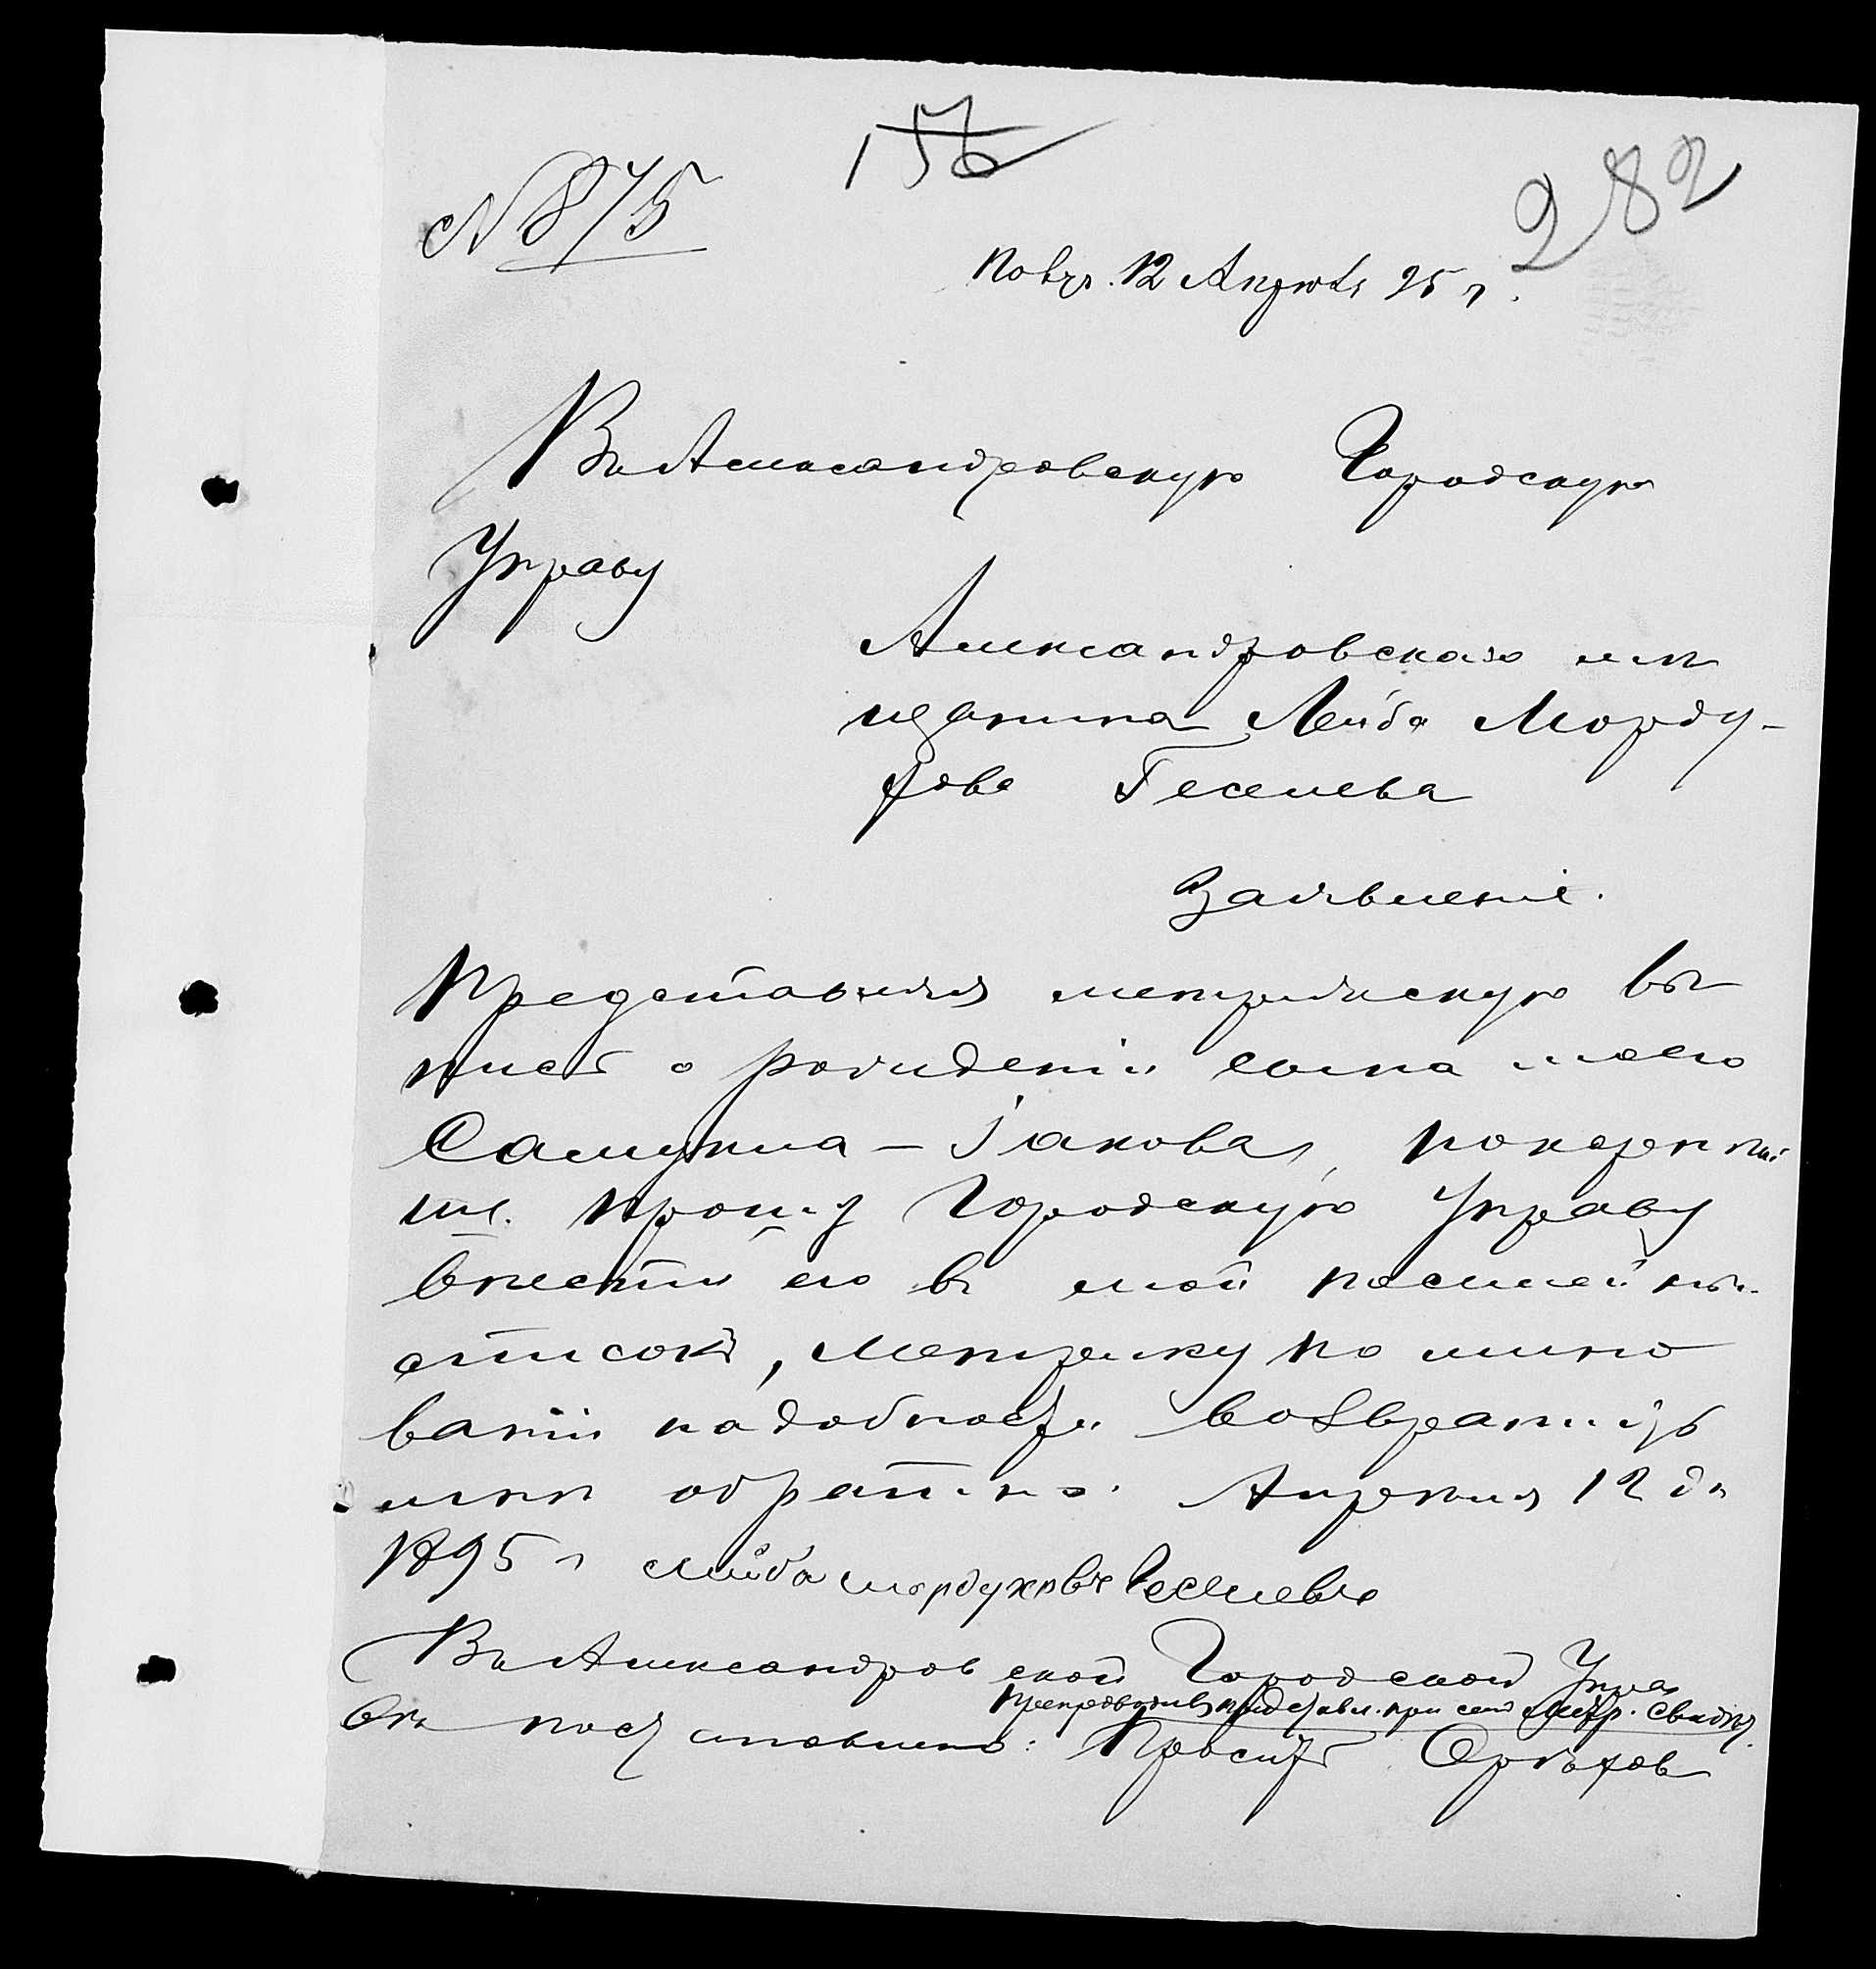 156
282
№ 875
Получ. 12 Апреля 95 г.
Въ Александровскую Городскую
Управу
Александровскаго мѣ
щанина Лейба Морду-
хова Гесслева
Заявленіе.
Представляя метрическую вы
пись о рожденіи сына моего
Самуила-Іакова, покорнѣй
ше прошу Городскую Управу
внести его въ мой посемейный
списокъ, Метрику по мино
ваніи надобности возвратить
мнѣ обратно. Апреля 12 дн
1895 г Лейба Мордуховъ Геселевъ
Въ Александровской Городской Упра
препроводивъ представл. при семъ метр. свидѣт.
вѣ постановлено: Просить